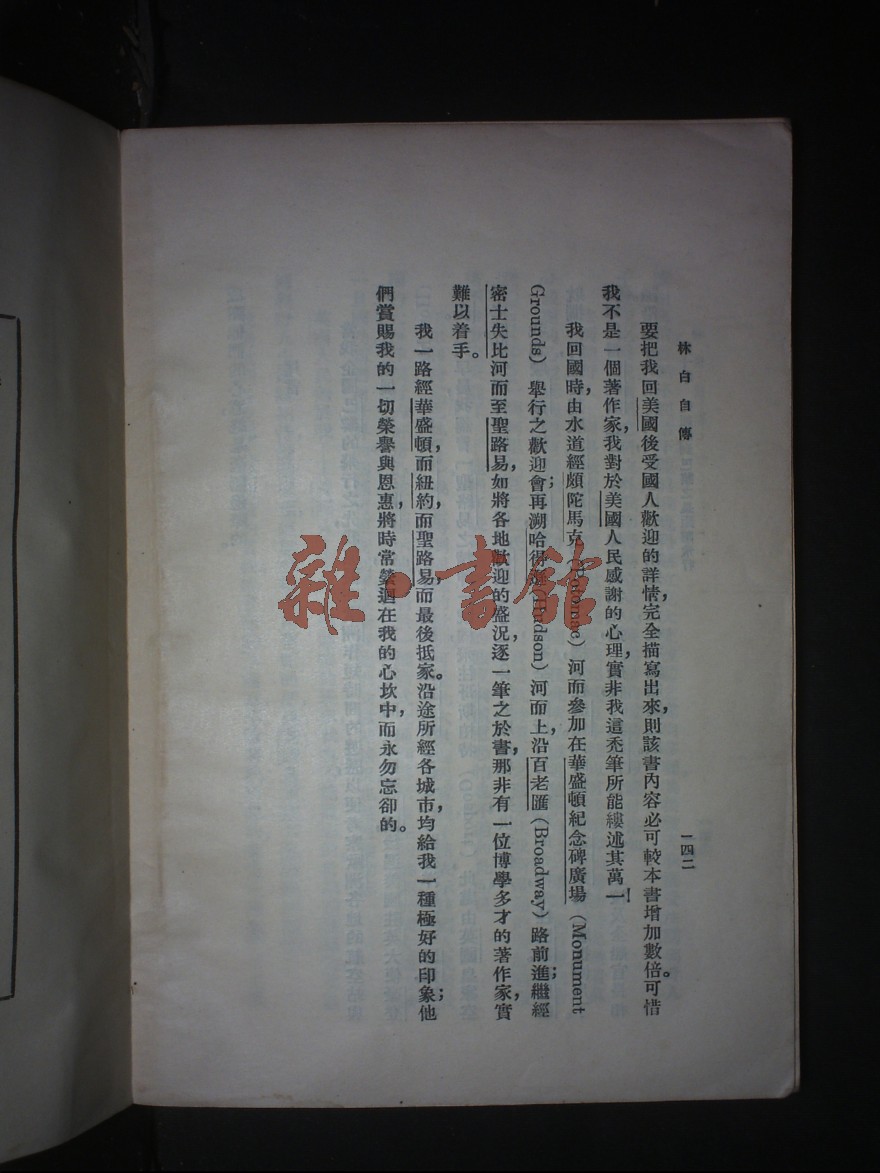 林白自傳
一四二
要把我回美國後受國人歡迎的詳情，完全描寫出來，則該書內容必可較本書增加數倍。可惜
我不是一個著作家，我對於美國人民感謝的心理，實非我這禿筆所能縷述其萬一！
我回國時，由水道經頗陀馬克（Potomac）河而參加在華盛頓紀念碑廣場（Monument
Grounds）舉行之歡迎會；再溯哈得遜（Hudson）河而上，沿百老匯（Broadway）路前進；繼經
密士失比河而至聖路易，如將各地歡迎的盛況，逐一筆之於書，那非有一位博學多才的著作家，實
難以着手。
我一路經華盛頓，而紐約，而聖路易而最後抵家。沿途所經各城市，均給我一種極好的印象；他
們賞賜我的一切榮譽與恩惠，將時常縈迴在我的心坎中，而永勿忘卻的。
雜·書館